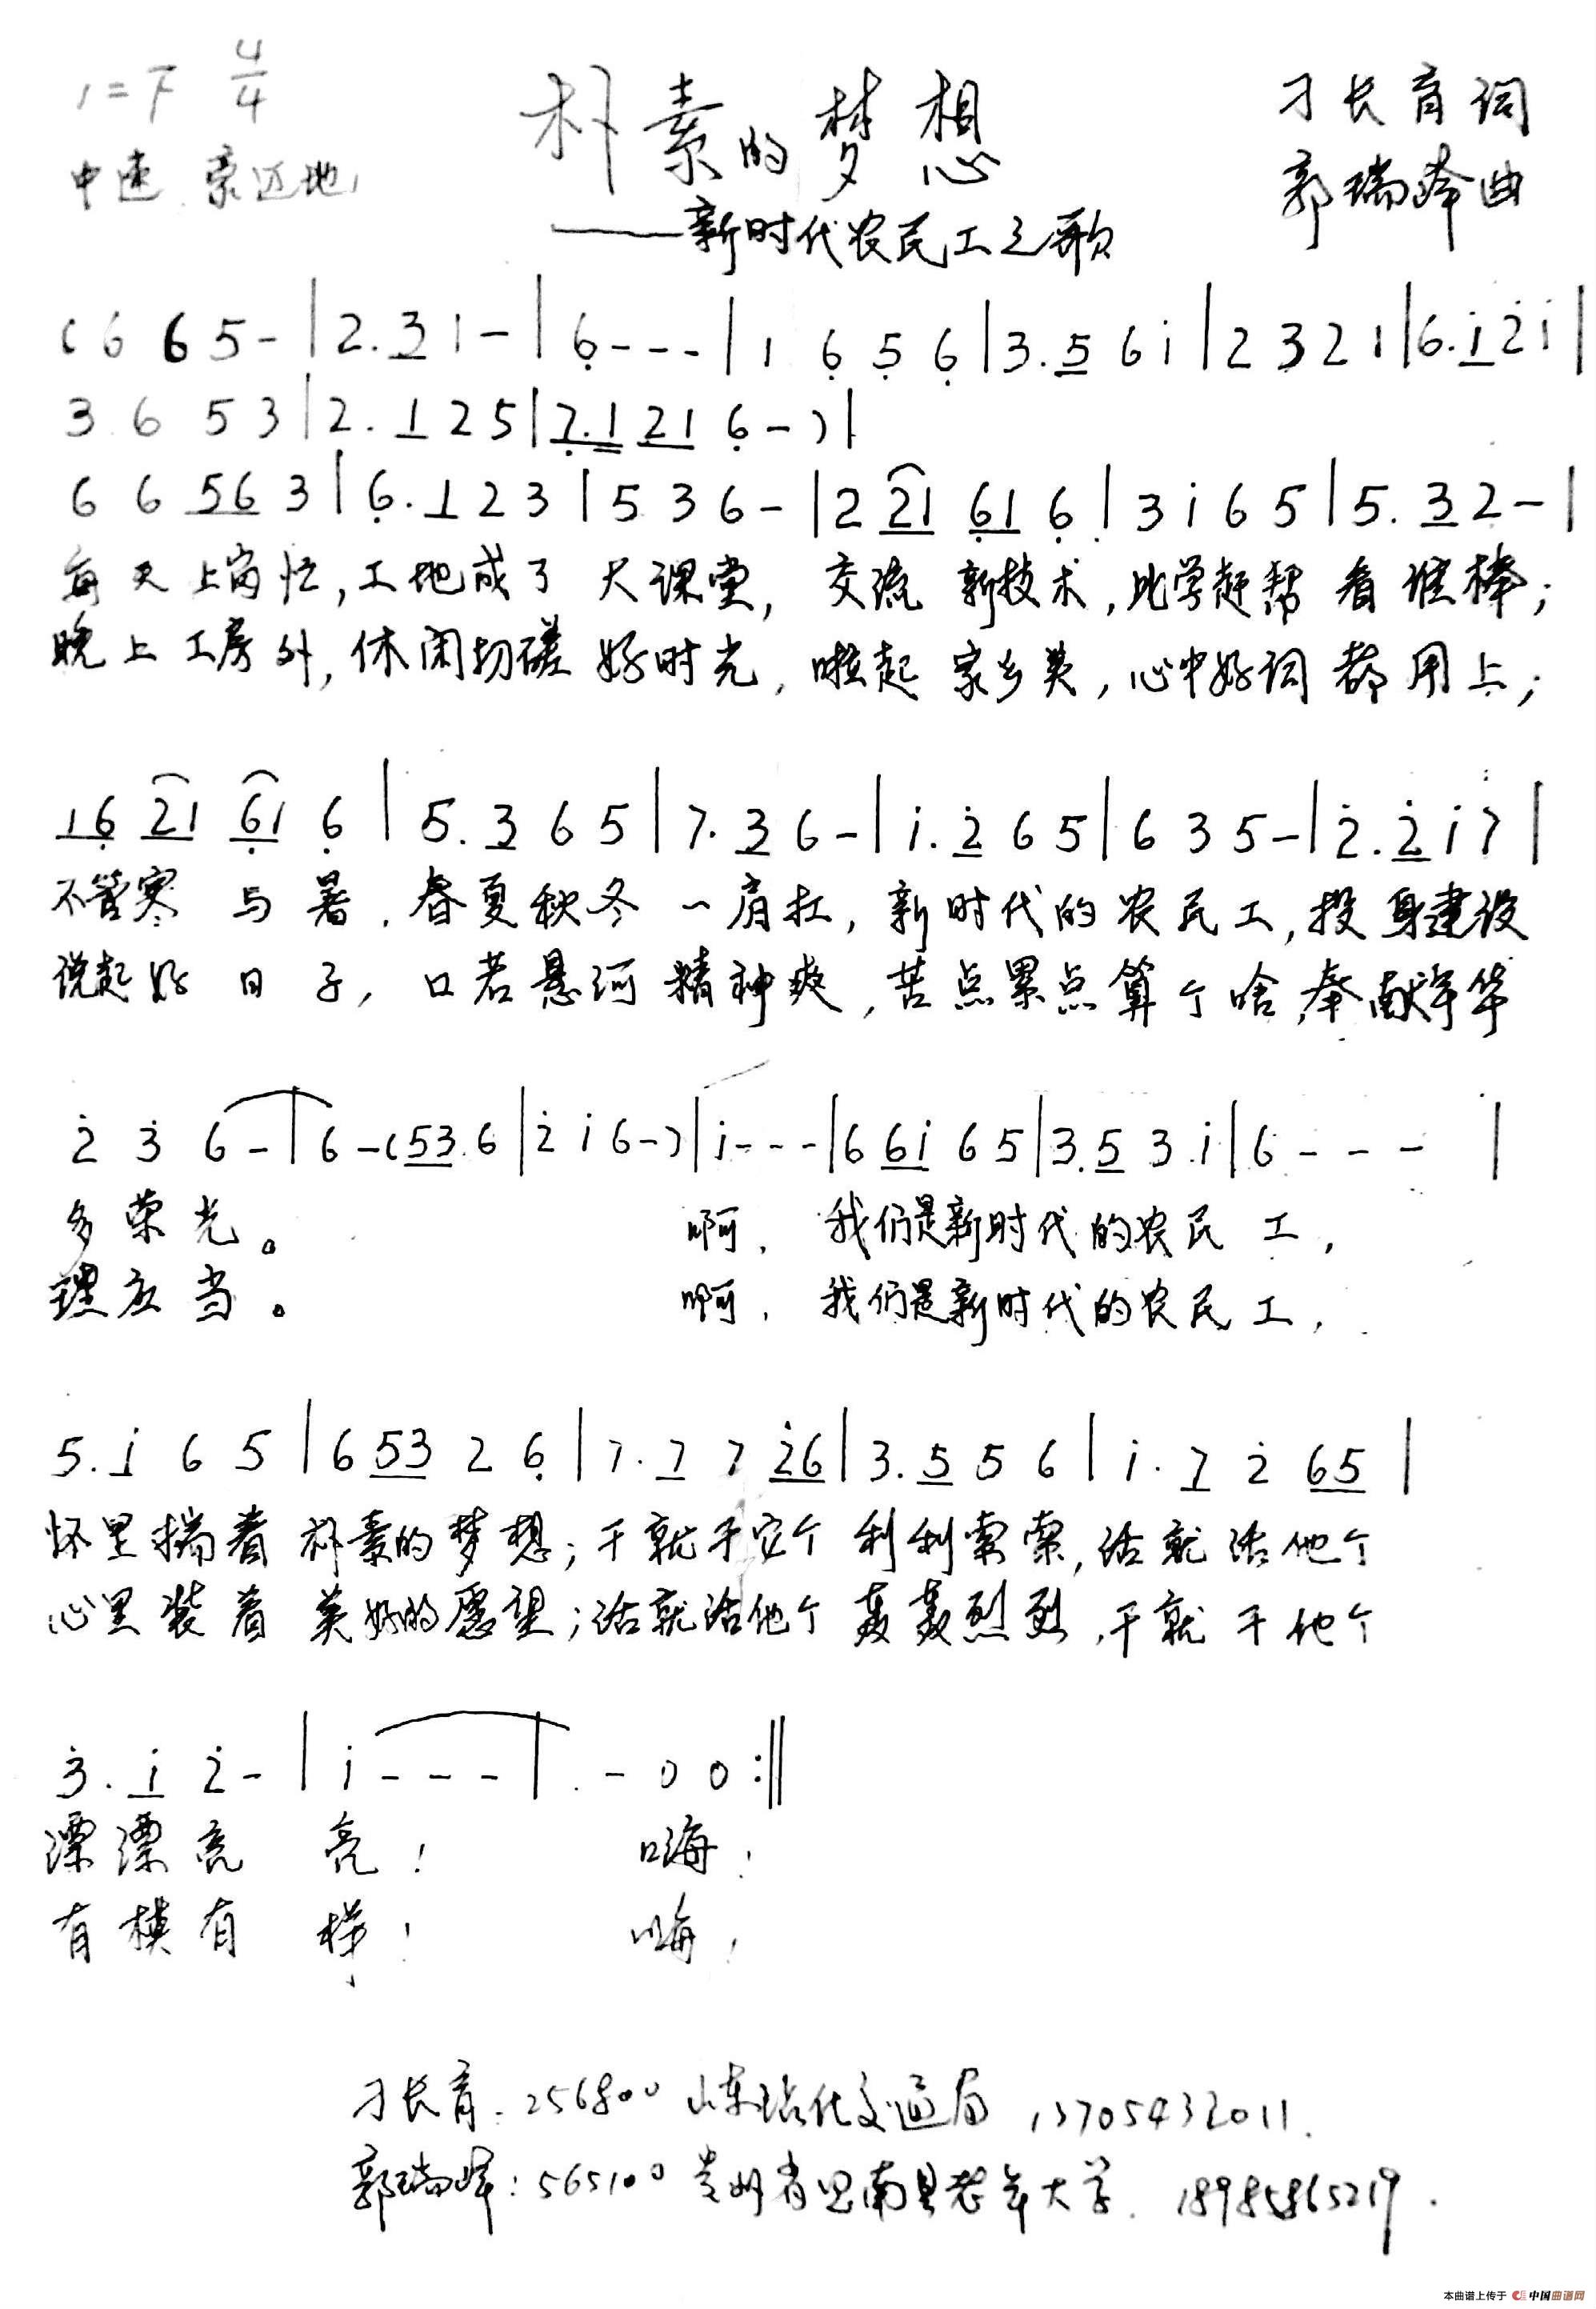 1=F 4/4
朴素的梦想
刁长育词
中速 豪迈地
郭瑞峰曲
——新时代农民工之歌
(6 6 5 - | 2. 3 1 - | 6 - - - | 1 6 5 6 | 3. 5 6 i | 2 3 2 1 | 6. i 2 i |
3 6 5 3 | 2. 1 2 5 | 7. 1 2 1 6 - ) |
6 6 56 3 | 6. 1 2 3 | 5 3 6 - | 2 21 61 6 | 3 i 6 5 | 5. 3 2 - |
每天上岗忙,工地成了大课堂,交流新技术,比学赶帮看谁棒;
晚上工房外,休闲切磋好时光,啦起家乡美,心中好词都用上;
16 21 61 6 | 5. 3 6 5 | 7. 3 6 - | i. 2 6 5 | 6 3 5 - | 2. 2 i 7 |
不管寒与暑,春夏秋冬一肩扛,新时代的农民工,投身建设
说起好日子,口若悬河精神爽,苦点累点算个啥,奉献年华
2 3 6 - | 6 - (53 6 | 2 i 6 - ) | i - - - | 6 6i 6 5 | 3. 5 3 i | 6 - - - |
多荣光。 啊, 我们是新时代的农民工,
理应当。 啊, 我们是新时代的农民工,
5. i 6 5 | 6 53 2 6 | 7. 7 7 26 | 3. 5 5 6 | i. 7 2 65 |
怀里揣着朴素的梦想;干就干它个利利索索,活就活他个
心里装着美好的愿望;活就活他个轰轰烈烈,干就干他个
3. i 2 - | i - - - | - 0 0 :||
漂漂亮亮! 嗨!
有模有样! 嗨!
刁长育:256800 山东沾化交通局 13705432011.
郭瑞峰:565100 贵州省思南县老年大学. 18985865219.
本曲谱上传于 中国曲谱网